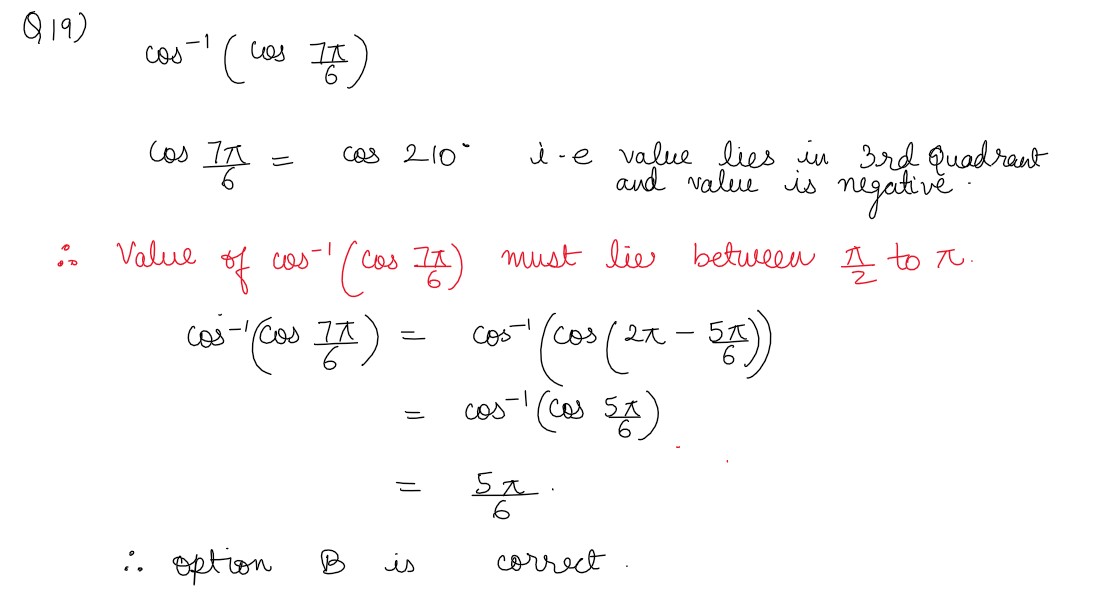 Q19)
cos⁻¹(cos 7π/6)
cos 7π/6 = cos 210° i-e value lies in 3rd Quadrant
and value is negative.
∴ Value of cos⁻¹(cos 7π/6) must lie between π/2 to π.
cos⁻¹(cos 7π/6) = cos⁻¹(cos(2π − 5π/6))
= cos⁻¹(cos 5π/6)
= 5π/6.
∴ option B is correct.